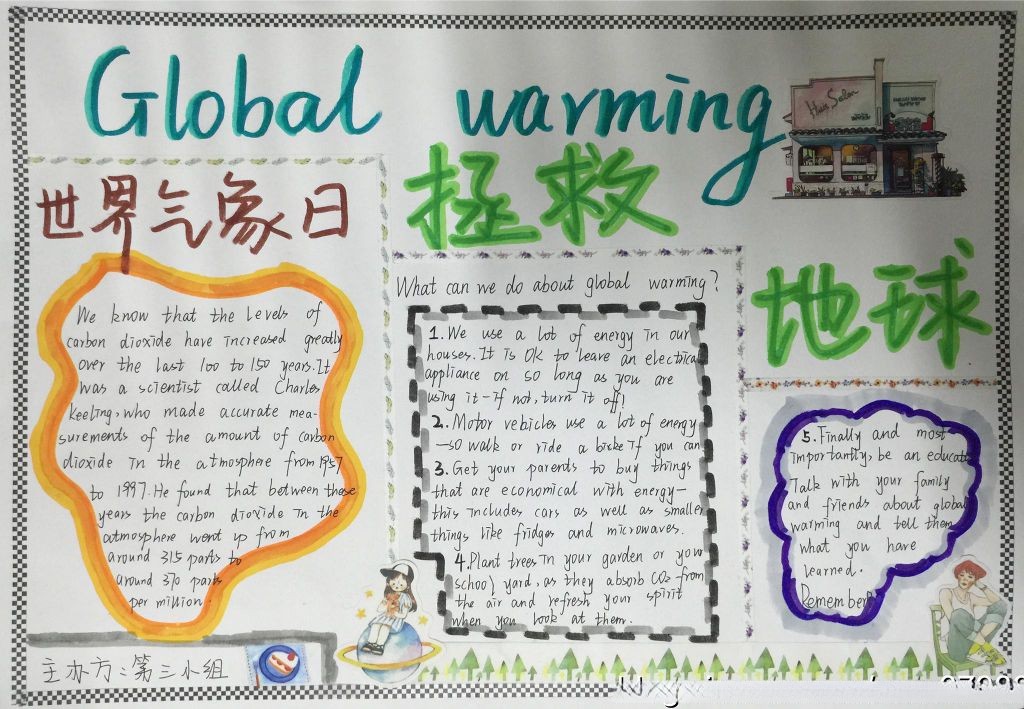 Global warming
世界气象日
拯救
地球
Hair Salon
We know that the levels of
carbon dioxide have increased greatly
over the last 100 to 150 years. It
was a scientist called Charles
Keeling, who made accurate mea-
surements of the amount of carbon
dioxide in the atmosphere from 1957
to 1997. He found that between these
years the carbon dioxide in the
atmosphere went up from
around 315 parts to
around 370 parts
per million.
主办方:第三小组
What can we do about global warming?
1. We use a lot of energy in our
houses. It is OK to leave an electrical
appliance on so long as you are
using it - if not, turn it off!
2. Motor vehicles use a lot of energy
—so walk or ride a bicke if you can
3. Get your parents to buy things
that are economical with energy—
this includes cars as well as smaller
things like fridges and microwaves.
4. Plant trees in your garden or your
school yard, as they absorb CO2 from
the air and refresh your spirit
when you look at them.
5. Finally and most
importantly, be an educato
Talk with your family
and friends about global
warming and tell them
what you have
learned.
Remember